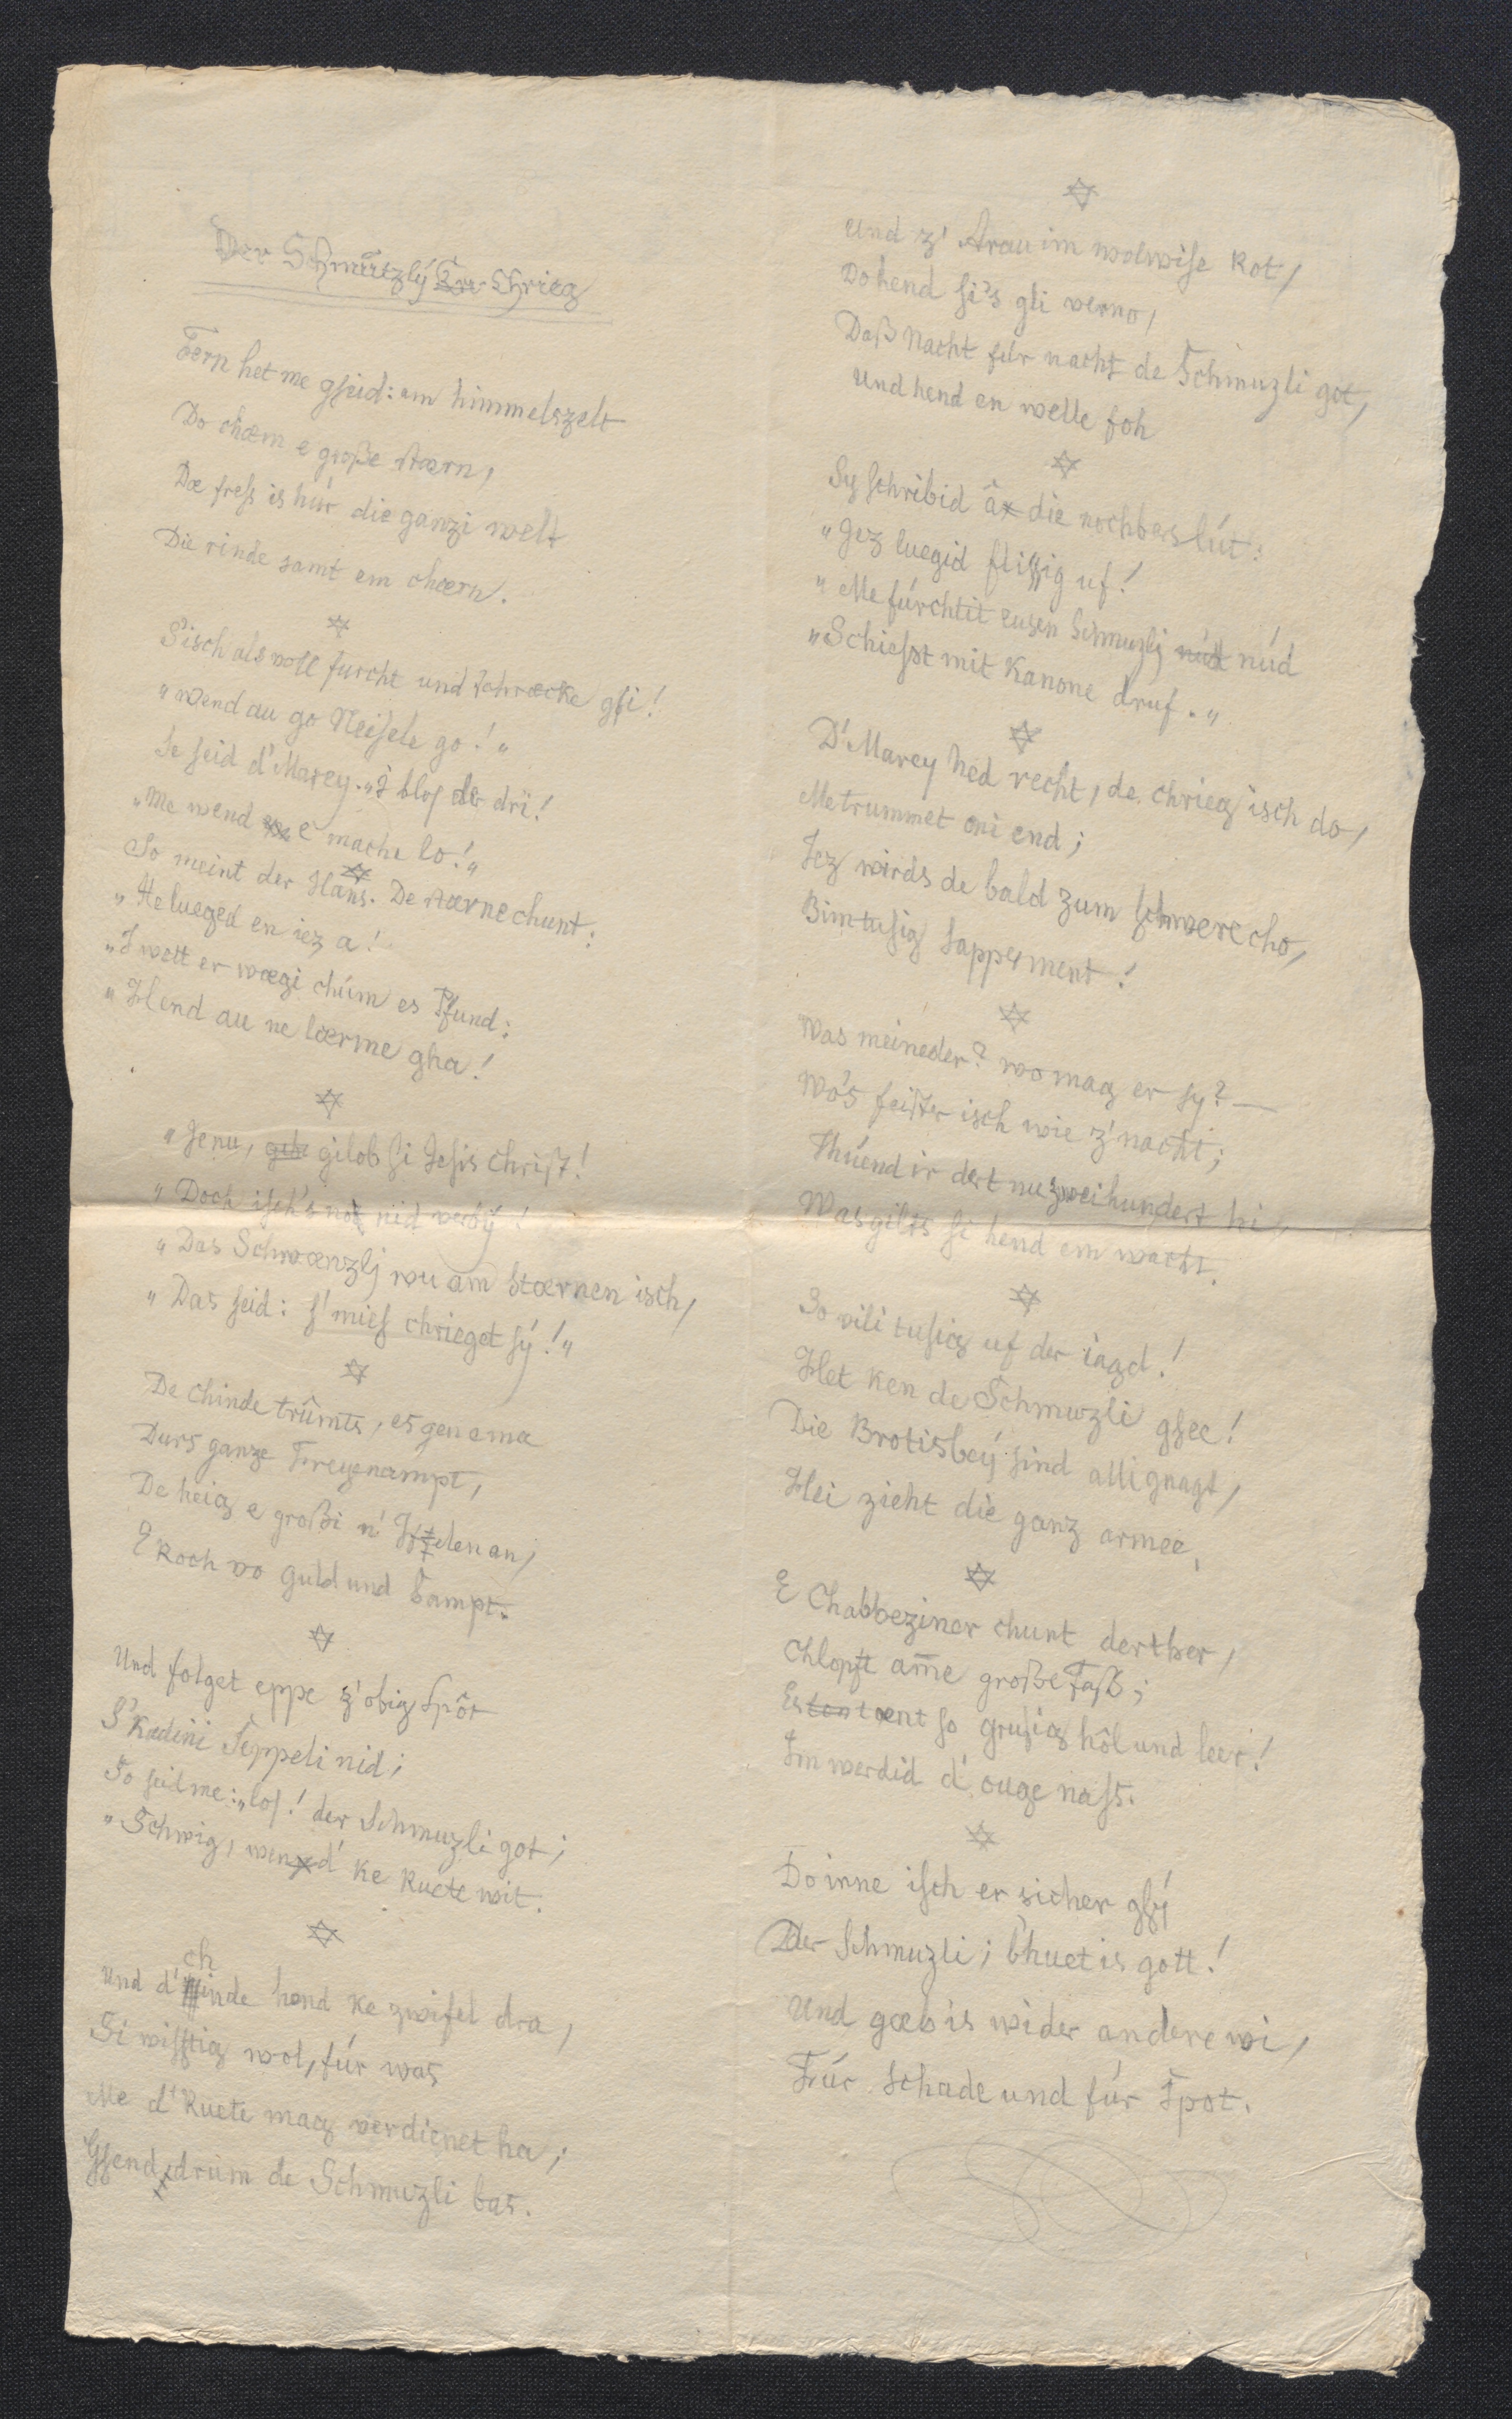 Der Schmützlÿ Chrieg
Fern het me gseid: am himmelszelt
Do chæm e große stærn,
Dæ fress is hür die ganzi welt
Die rinde samt em chærn.
S'isch als voll furcht und schræcke gsi!
„Wend au go Neisele go!"
Se seid d'Marey. „I blos der dri!
„Me wend e mache lo!"
So meint der Hans. De stærne chunt:
„He lueged en iez a!
„I wett er wægi chúm es Pfund:
„Hend au ne lærme gha!
„Jenu, gilob si Jesis Christ!
„Doch isch's no nid verbÿ!
„Das Schwænzlj wu am stærnen isch,
„Das seid: s'mies chrieget sÿ!"
De Chinde trûmts, es gen e ma
Durs ganze Freyenampt,
De heig e großi n' Iselen an,
E Roch vo guld und Sampt.
Und folget eppe z'obig spôt
S'Kædini Seppeli nid;
So seid me: „los! der Schmuzli got;
„Schwig, wend' ke Ruete wit.
Und d'chinde hend ke zwifel dra,
Si wisstig wol, für was
Me d'Ruete mag verdienet ha;
Gsend drum de Schmuzli bas.
Und z'Arau im wolwise Rot,
Do hend si's gli verno,
Daß Nacht für nacht de Schmuzli got,
Und hend en welle foh
Sy schribid â die nochbers lút:
„Jez luegid flissig uf!
„Me fürchtit eusen Schmuzlj núd
„Schiesst mit Kanone druf."
D'Marey hed recht, de chrieg isch do,
Me trummet oni end;
Jez wirds de bald zum schwere cho,
Bimtusig sapperment!
Was meineder? wo mag er sy? —
Wo's feister isch wie z'nacht;
Thúend ir dert nu zweihundert hi,
Was gilts si hend em wacht.
So vili tusig uf der iagd!
Het ken de Schmuzli gsee!
Die Brotisbeÿ sind alli gnagt,
Hei zieht die ganz armee,
E Chabbeziner chunt derther,
Chlopft am̅e große Fass;
Es tœnt so grusig hôl und leer!
Im werdid d'ouge nass.
Do inne isch er sicher gsÿ
Der Schmuzli; b'huet is gott!
Und gæb is wider andere wi,
Für schade und fúr Spot.